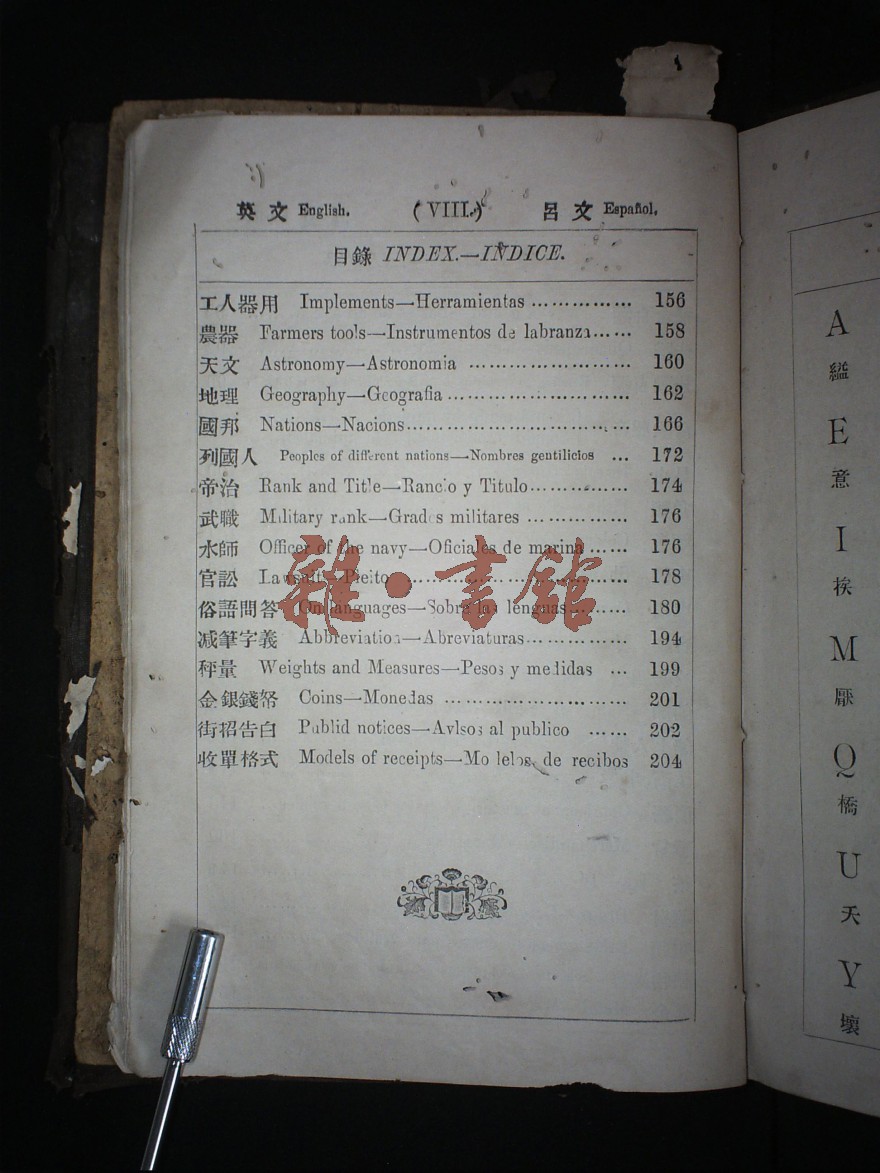 英文 English. (VIII.) 呂文 Español.
目錄 INDEX.—INDICE.
工人器用 Implements—Herramientas ............... 156
農器 Farmers tools—Instrumentos de labranza...... 158
天文 Astronomy—Astronomia ........................ 160
地理 Geography—Geografia ........................... 162
國邦 Nations—Nacions................................. 166
列國人 Peoples of different nations—Nombres gentilicios ... 172
帝治 Rank and Title—Rancio y Titulo............... 174
武職 Military rank—Grados militares ............... 176
水師 Officer of the navy—Oficiales de marina ...... 176
官訟 Lawsuit—Pleito ................................. 178
俗語問答 On languages—Sobre las lenguas......... 180
减筆字義 Abbreviation—Abreviaturas............... 194
秤量 Weights and Measures—Pesos y medidas ... 199
金銀錢帑 Coins—Monedas ........................... 201
街招告白 Publid notices—Avlsos al publico ...... 202
收單格式 Models of receipts—Modelos de recibos 204
雜·書館
A
縊
E
意
I
挨
M
Q
橋
U
天
Y
壞